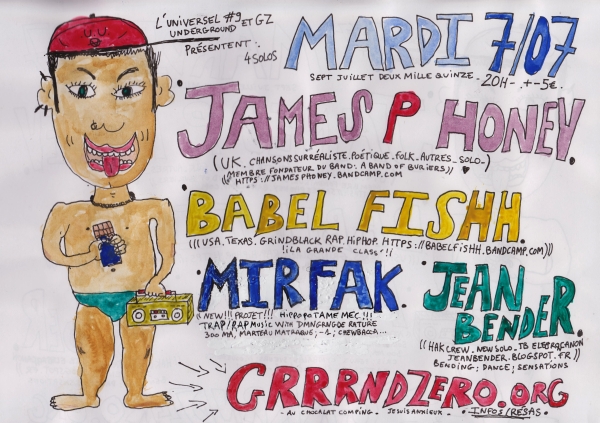 L'UNIVERSEL #9 ET GZ
UNDERGROUND
PRÉSENTENT:
4 SOLOS
MARDI 7/07
SEPT JUILLET DEUX MILLE QUINZE. - 20H - . + - 5€.
JAMES P HONEY.
(UK. CHANSONS SURRÉALISTE. POÉTIQUE. FOLK. AUTRES. SOLO-)
((MEMBRE FONDATEUR DU BAND: A BAND OF BURIERS))
HTTPS://JAMESPHONEY.BANDCAMP.COM
BABEL FISHH.
(((USA. TEXAS. GRINDBLACK RAP. HIPHOP. HTTPS://BABELFISHH.BANDCAMP.COM))
!¡LA GRANDE CLASSE!!
MIRFAK.
NEW!!! PROJET!!! HIPPOPOTAME MEC!!!
TRAP/RAP MUSIC WITH
300 MA, MARTEAU MATRAQUE, -1; CHEWBACCA...
JEAN BENDER.
((HAK CREW. NEW SOLO. TB
JEANBENDER.BLOGSPOT.FR))
BENDING; DANCE; SENSATIONS
GRRRNDZERO.ORG
- AU CHOCOLAT COMPING - JE SUIS ANXIEUX - • INFOS/RÉSAS •